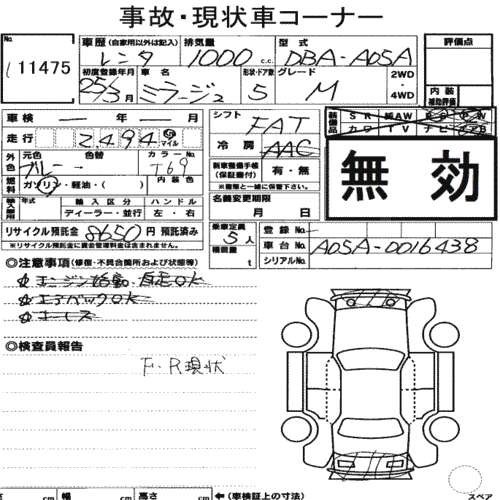 事故・現状車コーナー
No. 11475
車歴(自家用以外は記入) レンタ 排気量 1000 c.c. 型式 DBA-A05A
評価点
初度登録年月 25/3月 車名 ミラージュ 形状・ドア数 5 グレード M 2WD・4WD
内装補助評価
車検 年 月
シフト FAT
装備品 SR 純AW
カワ TV ナビ
走行 2494 マイル
冷房 AAC
無効
外色 元色 ブルー 色替 カラーNo. T69
新車整備手帳(保証書付) 有・無
※書類と一緒に保管下さい。
燃料 ガソリン・軽油・( ) 内装色
名義変更期限
月 日
輸入車用 年式 輸入区分 ハンドル
ディーラー・並行 左・右
リサイクル預託金 8650円 預託済み
※リサイクル預託金に資金管理料金は含まれません。
乗車定員 5人
積載量 t
登録No.
車台No. A05A-0016438
シリアルNo.
◎注意事項(修復・不具合箇所および状態等)
エンジン始動・自走OK
エアバックOK
キーレス
◎検査員報告
F・R現状
幅 cm 高さ cm ←(車検証上の寸法)
スペア